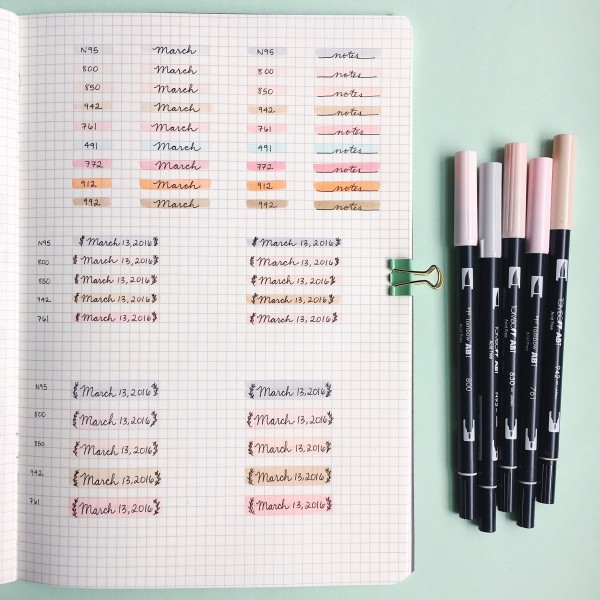 N95 March N95 notes
800 March 800 notes
850 March 850 notes
942 March 942 notes
761 March 761 notes
491 March 491 notes
772 March 772 notes
912 March 912 notes
992 March 992 notes
N95 March 13, 2016 March 13, 2016
800 March 13, 2016 March 13, 2016
850 March 13, 2016 March 13, 2016
942 March 13, 2016 March 13, 2016
761 March 13, 2016 March 13, 2016
N95 March 13, 2016 March 13, 2016
800 March 13, 2016 March 13, 2016
850 March 13, 2016 March 13, 2016
942 March 13, 2016 March 13, 2016
761 March 13, 2016 March 13, 2016
Tombow ABT 800
Tombow ABT
Tombow ABT 850
Tombow ABT 761
Tombow ABT 942